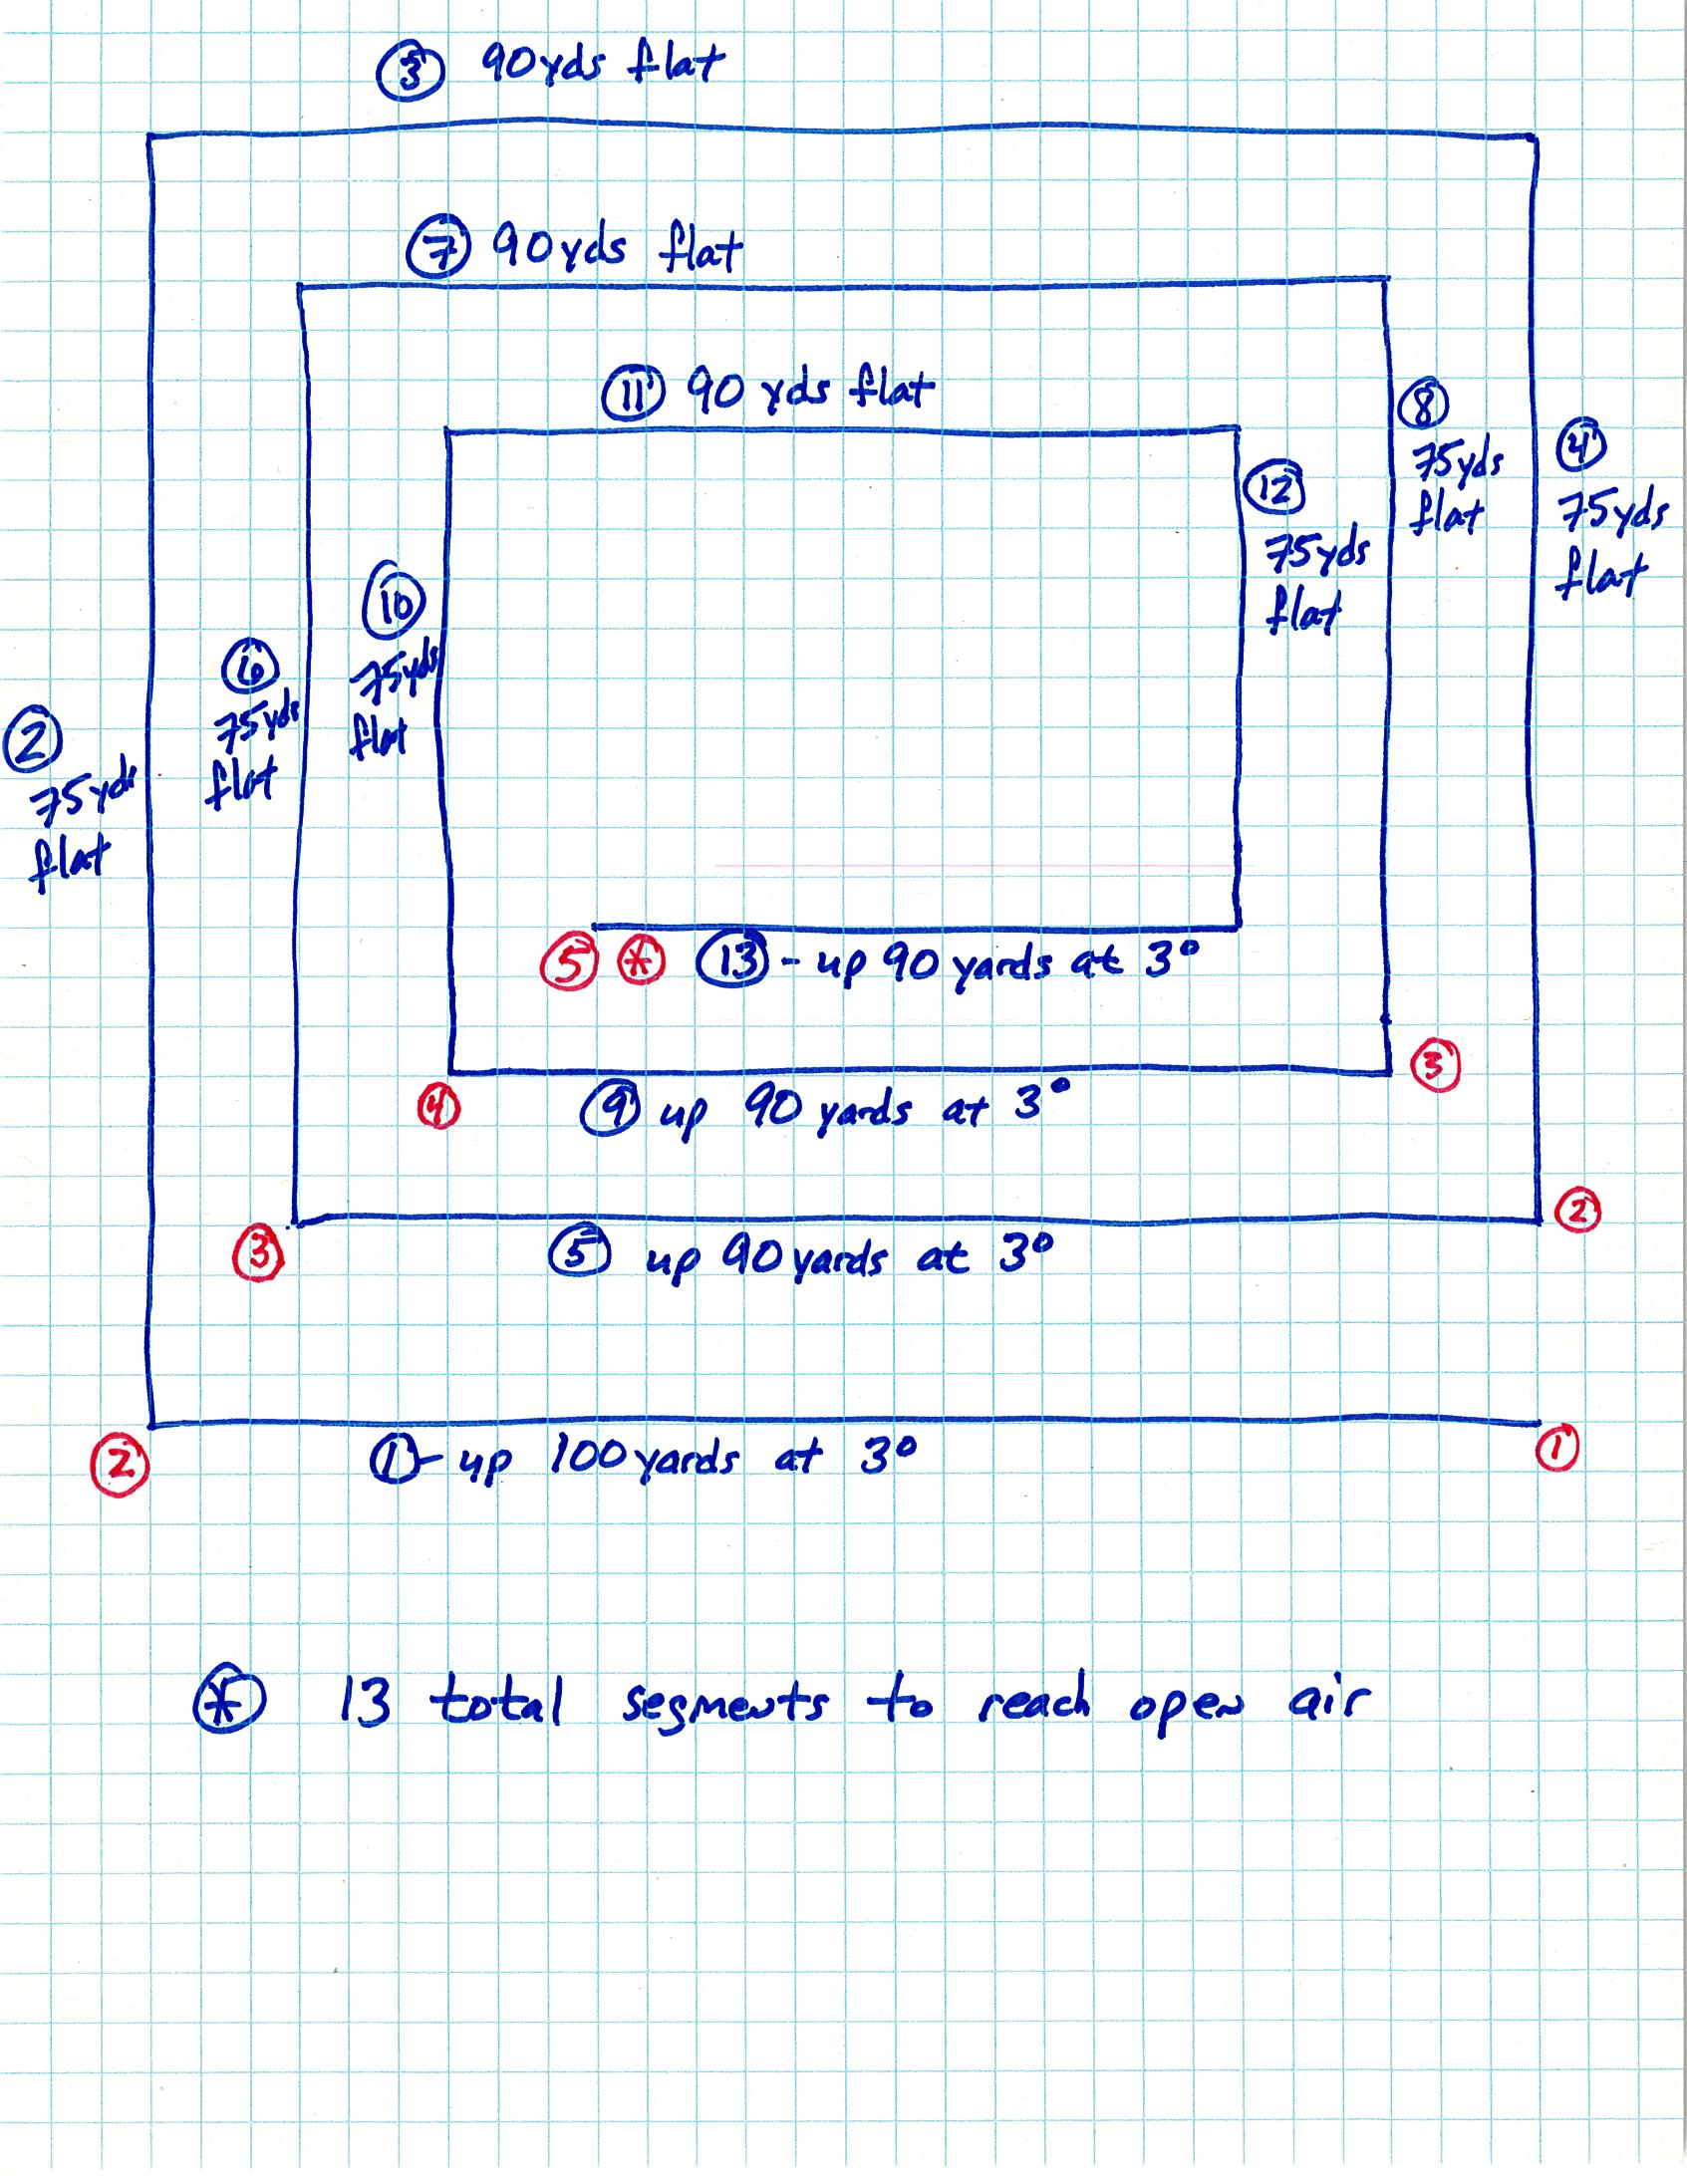 ③ 90yds flat
⑦ 90yds flat
⑪ 90 yds flat
⑧
75yds
flat
④
75yds
flat
⑫
75yds
flat
⑩
75yds
flat
⑥
75yds
flat
②
75yds
flat
⑤ ⊛ ⑬ - up 90 yards at 3°
③
④ ⑨ up 90 yards at 3°
②
③ ⑤ up 90 yards at 3°
①
② ①- up 100 yards at 3°
⊛ 13 total segments to reach open air